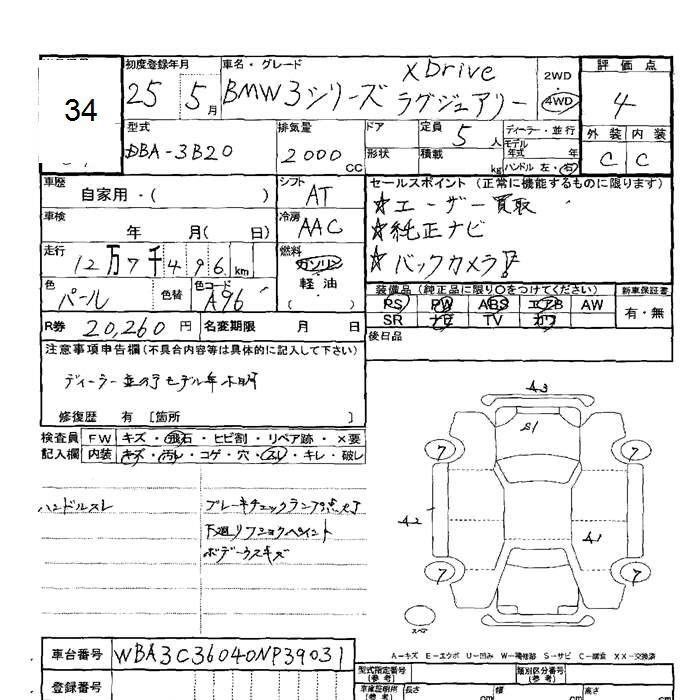 34
初度登録年月 車名・グレード 評価点
25 5月 BMW3シリーズ xDrive ラグジュアリー 2WD 4WD 4
型式 排気量 ドア 定員 ディーラー・並行 外装 内装
DBA-3B20 2000CC 形状 5人 モデル年式 年 C C
積載 kg ハンドル 左・右
車歴 シフト セールスポイント (正常に機能するものに限ります)
自家用・( ) AT ☆ユーザー買取
車検 冷房 ☆純正ナビ
年 月( 日) AAC ☆バックカメラ!
走行 燃料
12万7千496km ガソリン・軽油・( )
色 色替 色コード 装備品 (純正品に限り○をつけてください) 新車保証書
パール A96 PS PW ABS エアB AW 有・無
R券 20,260円 名変期限 月 日 SR ナビ TV カワ
注意事項申告欄(不具合内容等は具体的に記入して下さい) 後日品
ディーラー 並の子モデル年不明
修復歴 有 [箇所 ]
検査員記入欄 FW キズ・飛石・ヒビ割・リペア跡・×要
内装 キズ・汚レ・コゲ・穴・スレ・キレ・破レ
ハンドルスレ ブレーキチェックランプ点灯
下廻リフショクペイント
ボデーウスキズ
A3
S1
7 7
A2 A1
7 7
スペア
A-キズ E-エクボ U-凹み W-補修跡 S-サビ C-腐食 XX-交換済
車台番号 WBA3C36040NP39031
型式指定番号(参考) 類別区分番号(参考)
登録番号 車庫証明用(参考) 長さ cm 幅 cm 高さ cm